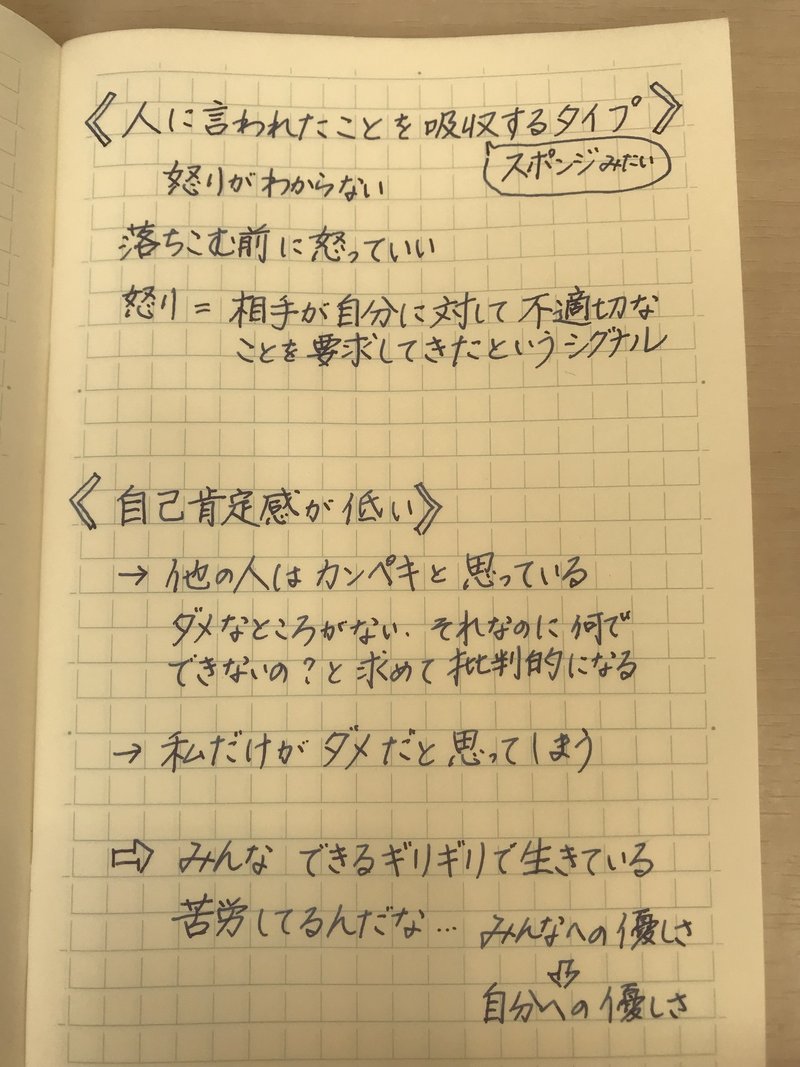 《人に言われたことを吸収するタイプ》
スポンジみたい
怒りがわからない
落ちこむ前に怒っていい
怒り=相手が自分に対して不適切な
ことを要求してきたというシグナル
《自己肯定感が低い》
→他の人はカンペキと思っている
ダメなところがない.それなのに何で
できないの?と求めて批判的になる
→私だけがダメだと思ってしまう
⇨みんなできるギリギリで生きている
苦労してるんだな…
みんなへの優しさ
⇩
自分への優しさ